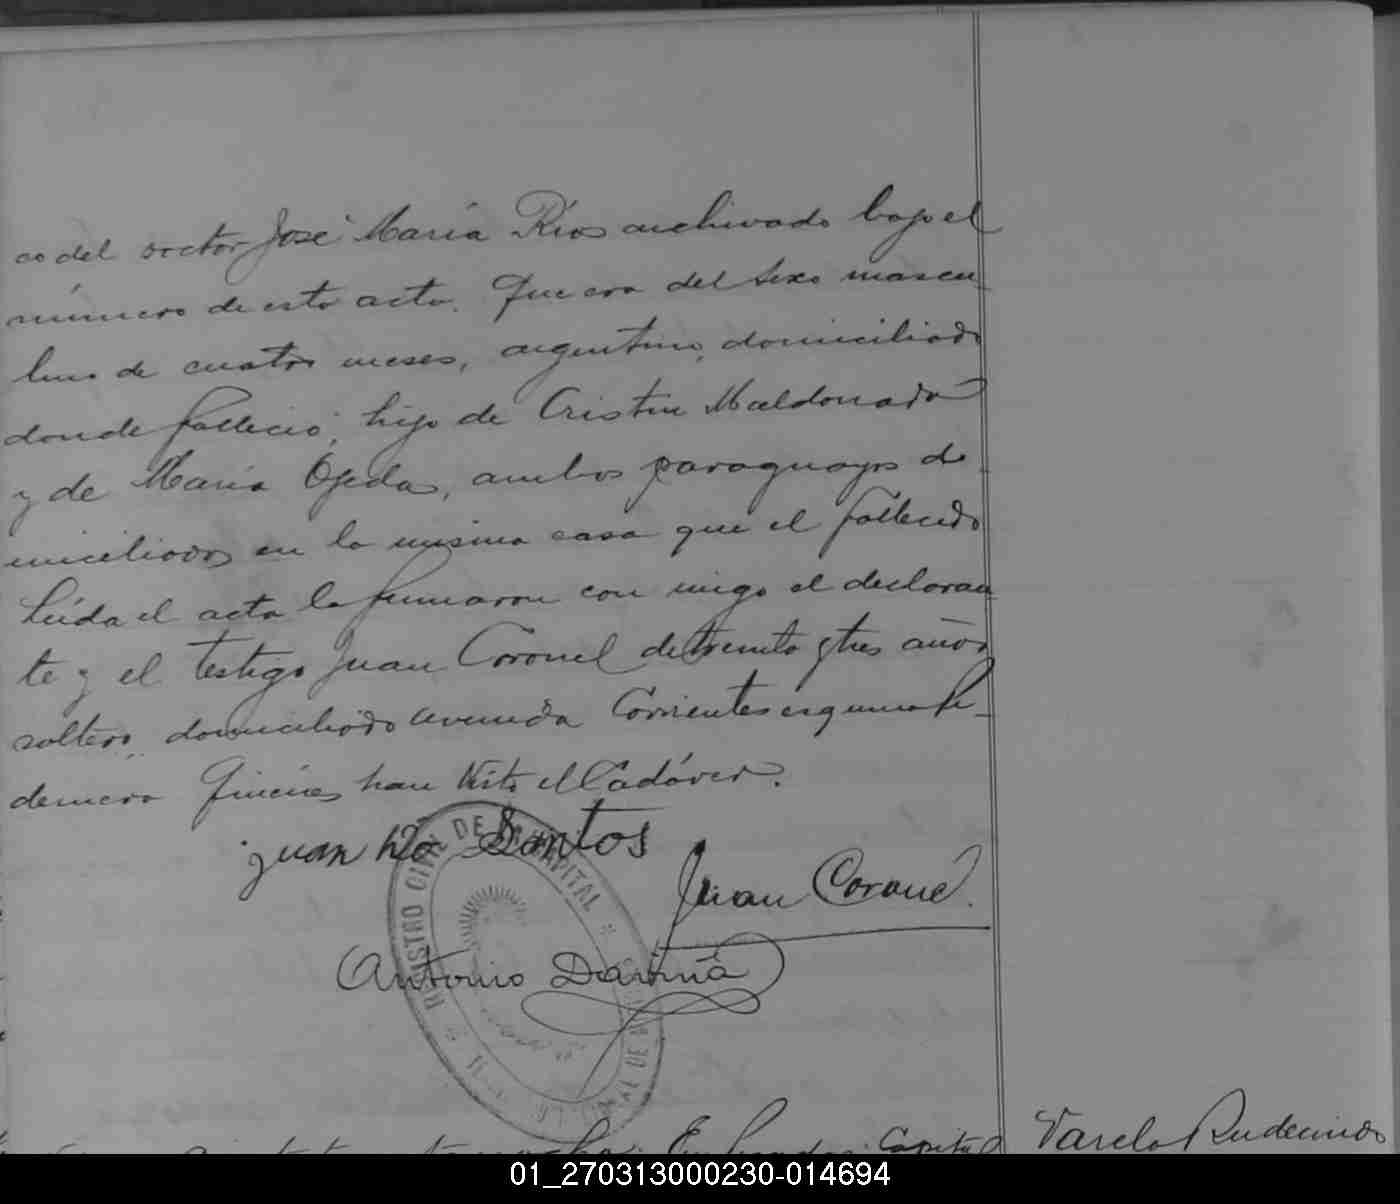 co del doctor José María Ríos archivado bajo el
número de esta acta. Que era del sexo mascu
lino de cuatro meses, argentino, domiciliado
donde falleció, hijo de Cristin Maldonado
y de María Ojeda, ambos paraguayos do
miciliados en la misma casa que el fallecido
Leída el acta la firmaron con migo el declaran
te y el testigo Juan Coronel de treinta y tres años
soltero, domiciliado avenida Corrientes esquina
Quienes han visto el Cadáver.
juan Do Santos
Juan Coronel
Antonio
REGISTRO CIVIL DE LA CAPITAL
Capital
Varela Rudecindo
01_270313000230-014694